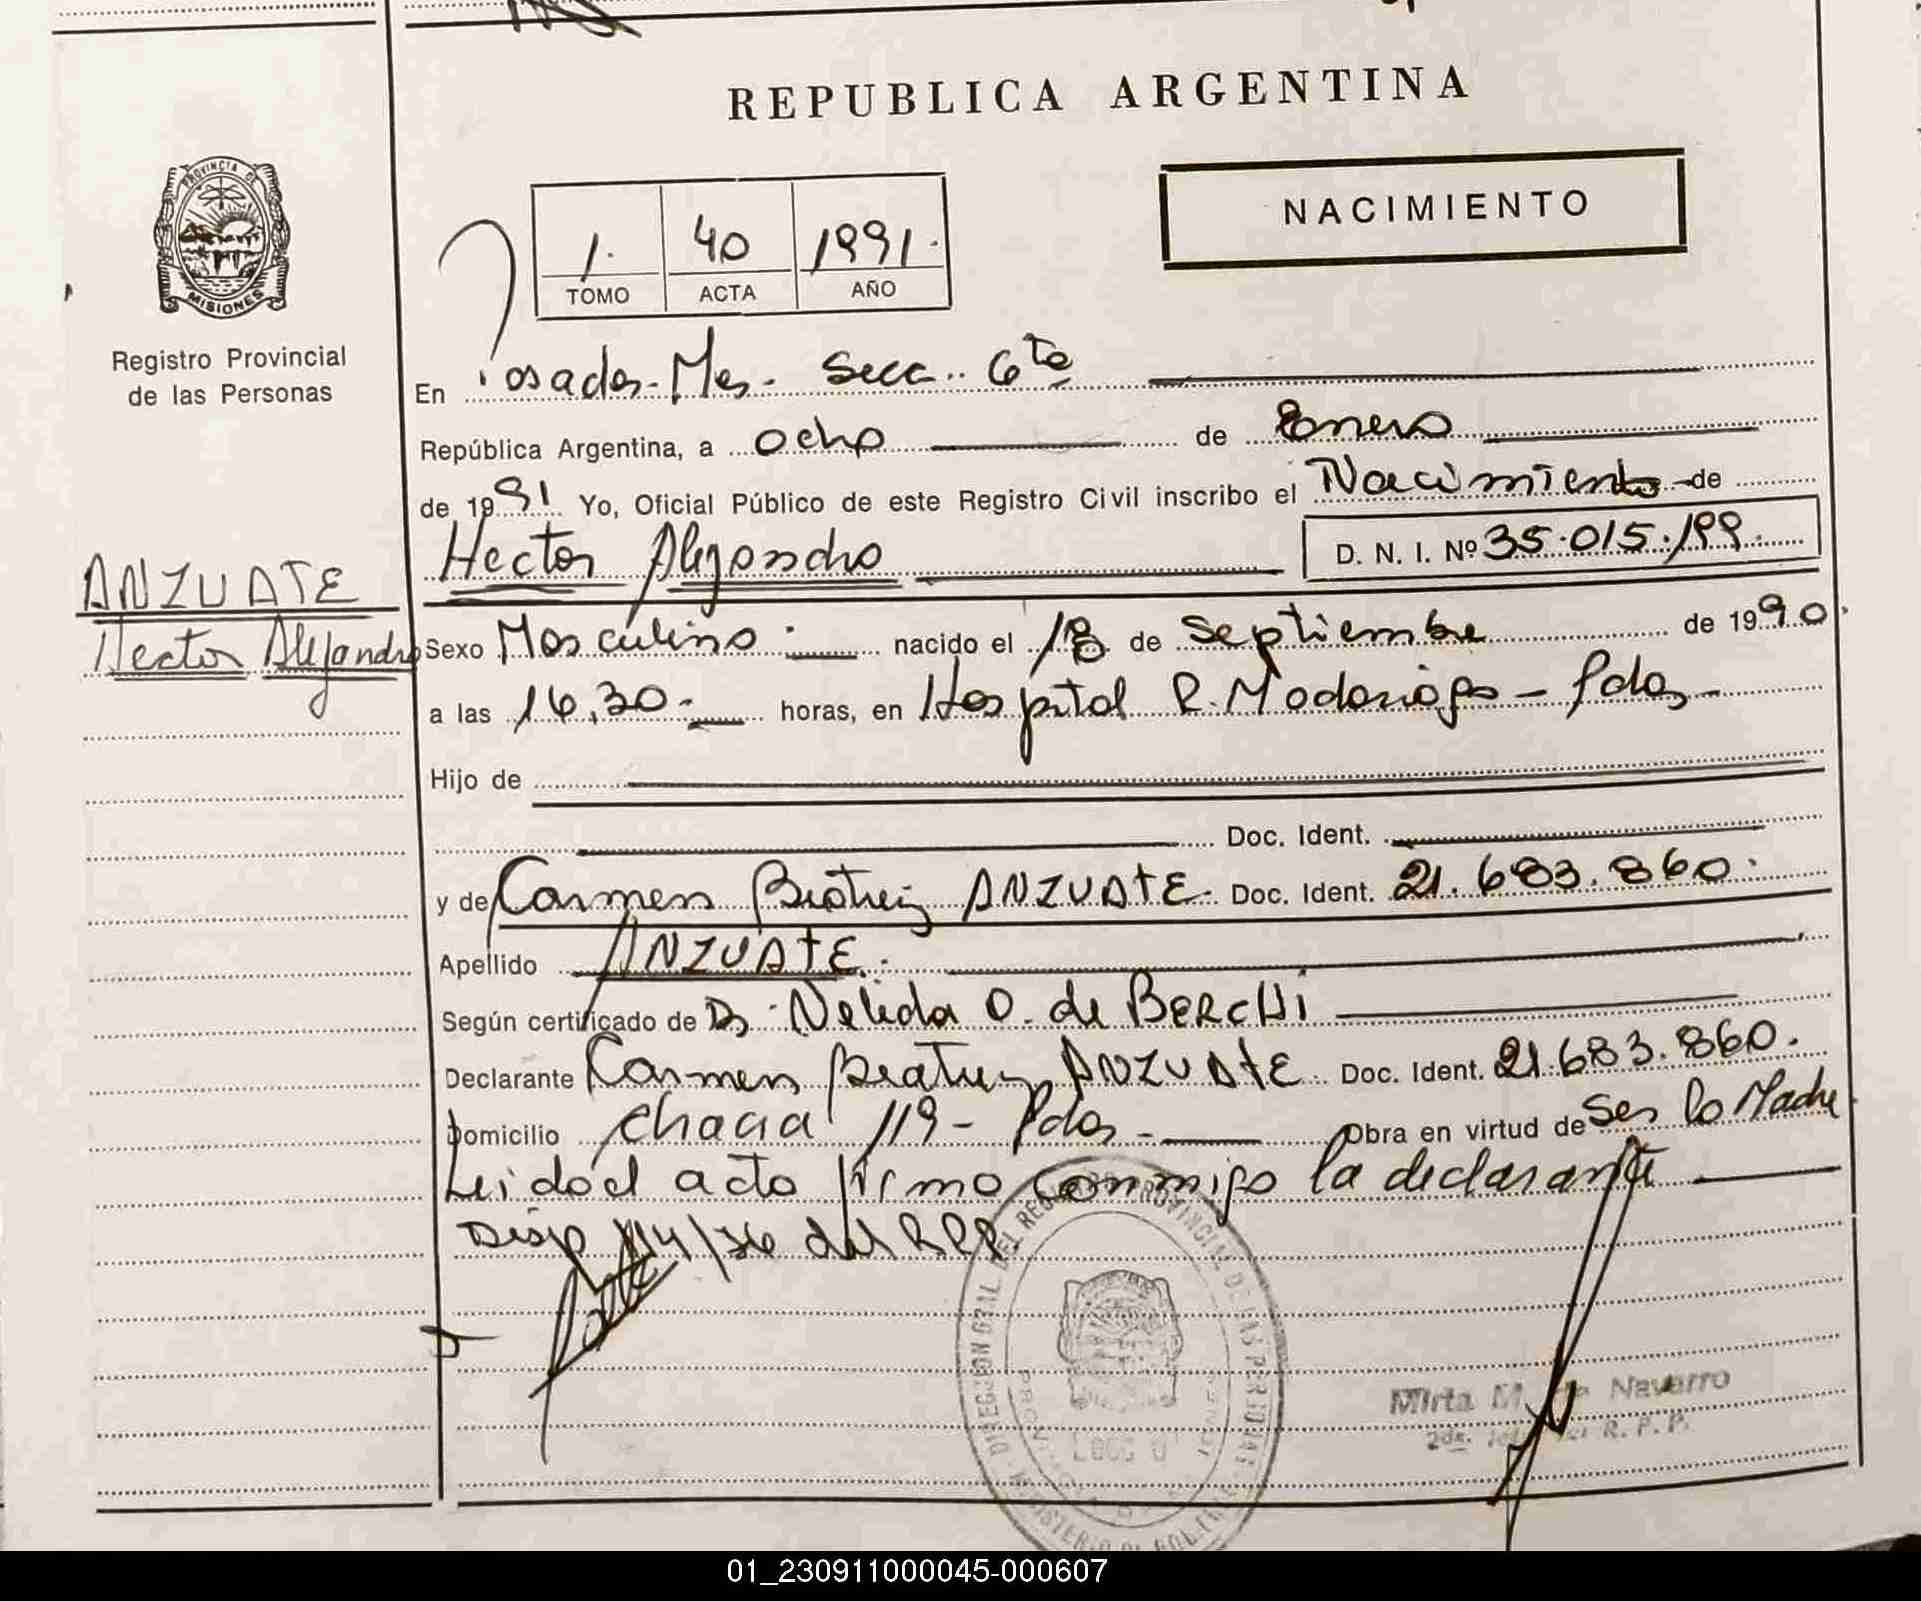 REPUBLICA ARGENTINA
PROVINCIA DE
MISIONES
Registro Provincial
de las Personas
NACIMIENTO
1. 40 1991.
TOMO ACTA AÑO
En Posadas - Mes - Secc.. 6ta
República Argentina, a ocho de Enero
de 1991 Yo, Oficial Público de este Registro Civil inscribo el Nacimiento de
Hector Alejandro D. N. I. Nº 35.015.199.
ANZUATE
Hector Alejandro
Sexo Masculino nacido el 18 de Septiembre de 1990.
a las 16,30 - horas, en Hospital R. Madariaga - Pdas -
Hijo de
Doc. Ident.
y de Carmen Beatriz ANZUATE. Doc. Ident. 21.683.860.
Apellido ANZUATE.
Según certificado de Dr Nelida O. de BERCHI
Declarante Carmen Beatriz ANZUATE. Doc. Ident. 21.683.860.
Domicilio 119 - Pdas - Obra en virtud de Ser la Madre
Leido el acta firma conmigo la declarante
Disp /76 del RPP.
DIRECCION GRAL DEL REGISTRO PROVINCIAL DE LAS PERSONAS
Mirta M. de Navarro
R. P. P.
01_230911000045-000607